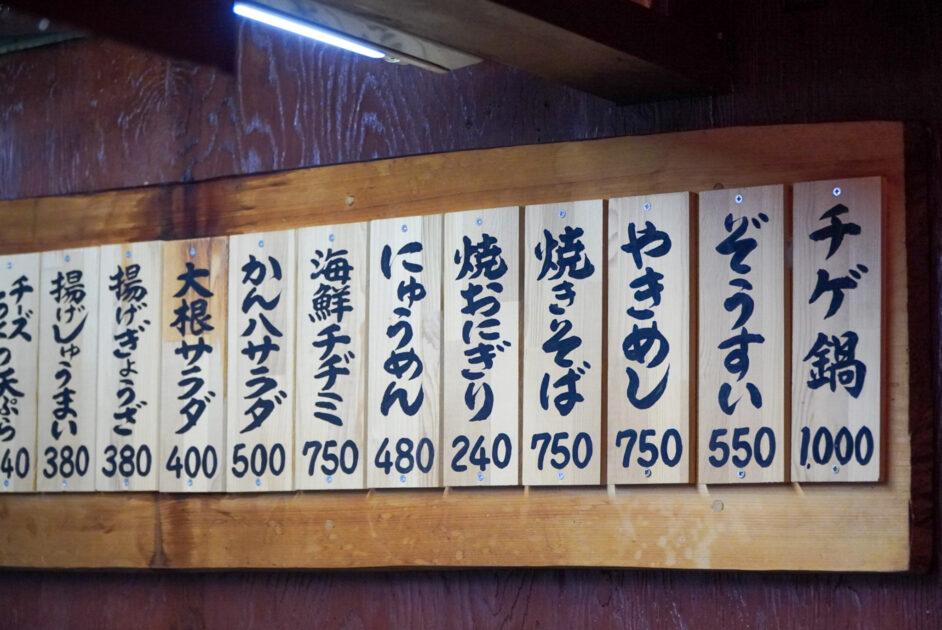 チゲ鍋
1,000
ぞうすい
550
やきめし
750
焼きそば
750
焼おにぎり
240
にゅうめん
480
海鮮チヂミ
750
かんパサラダ
500
大根サラダ
400
揚げぎょうざ
380
揚げしゅうまい
380
チーズ
ちくわ天ぷら
40